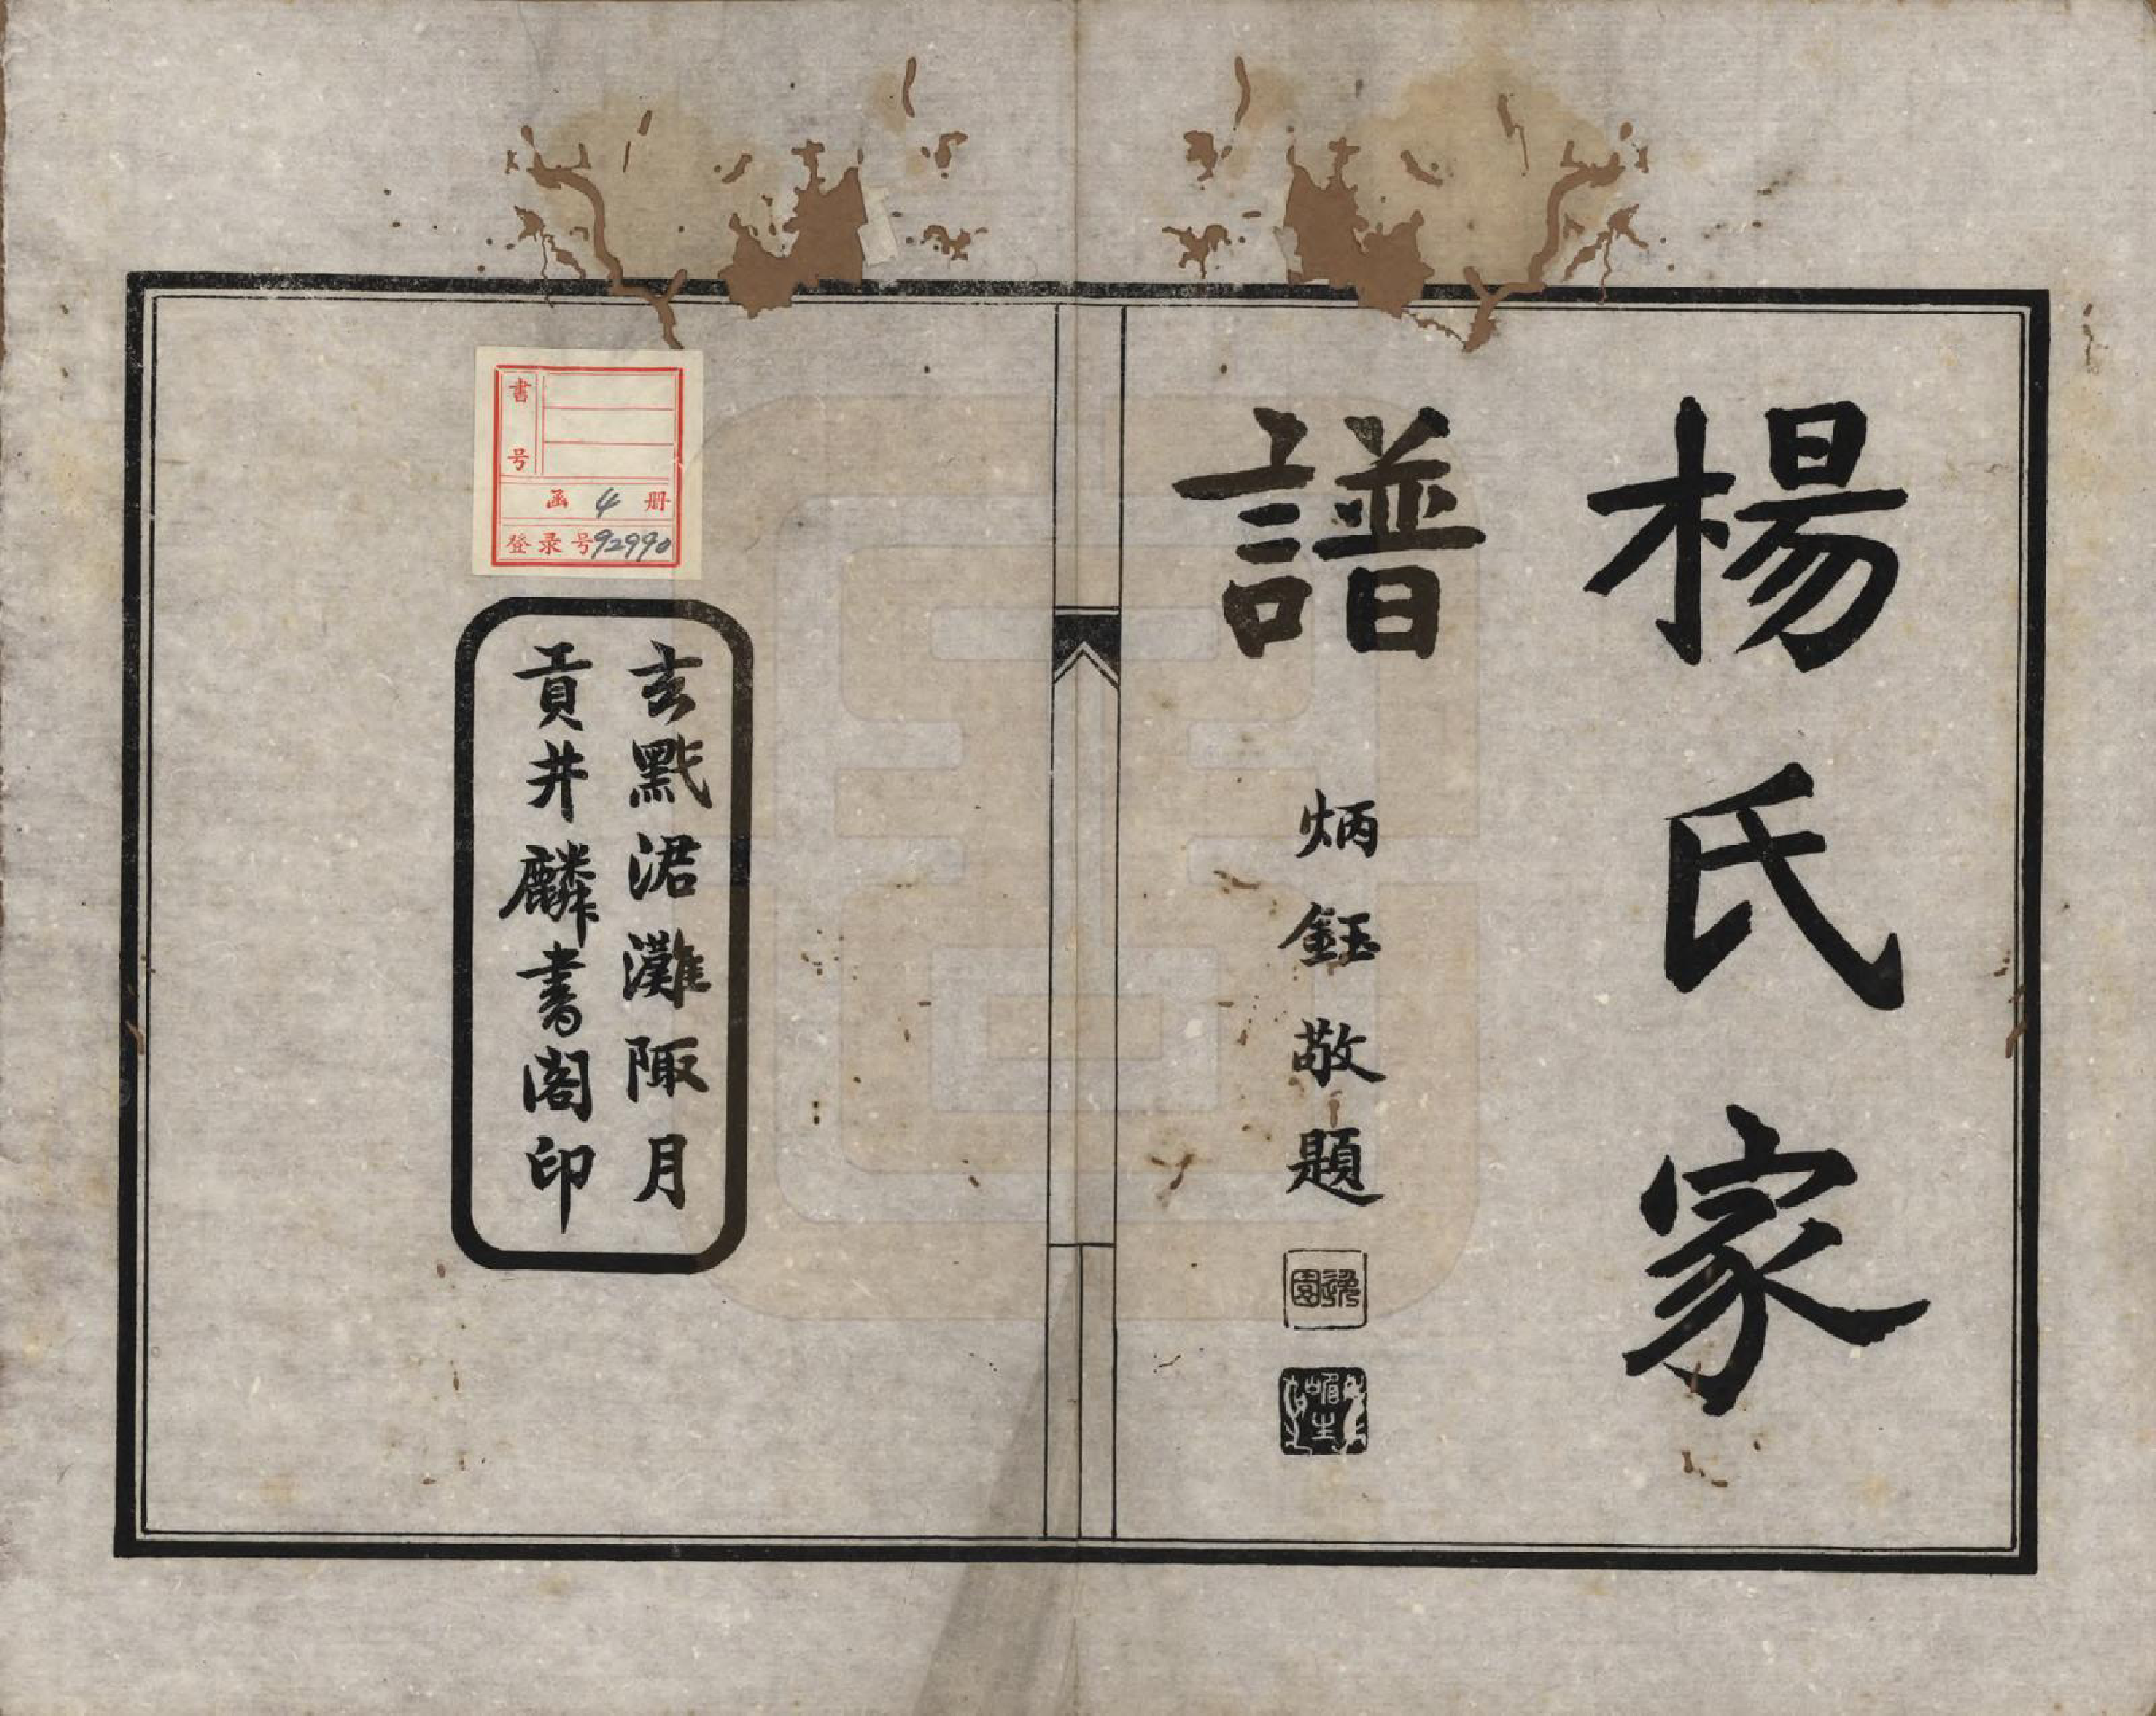 楊氏家
譜
炳鈺敬題
逸園
玄黓涒灘陬月
貢井麟書閣印
書号
函 4 册
登录号92990